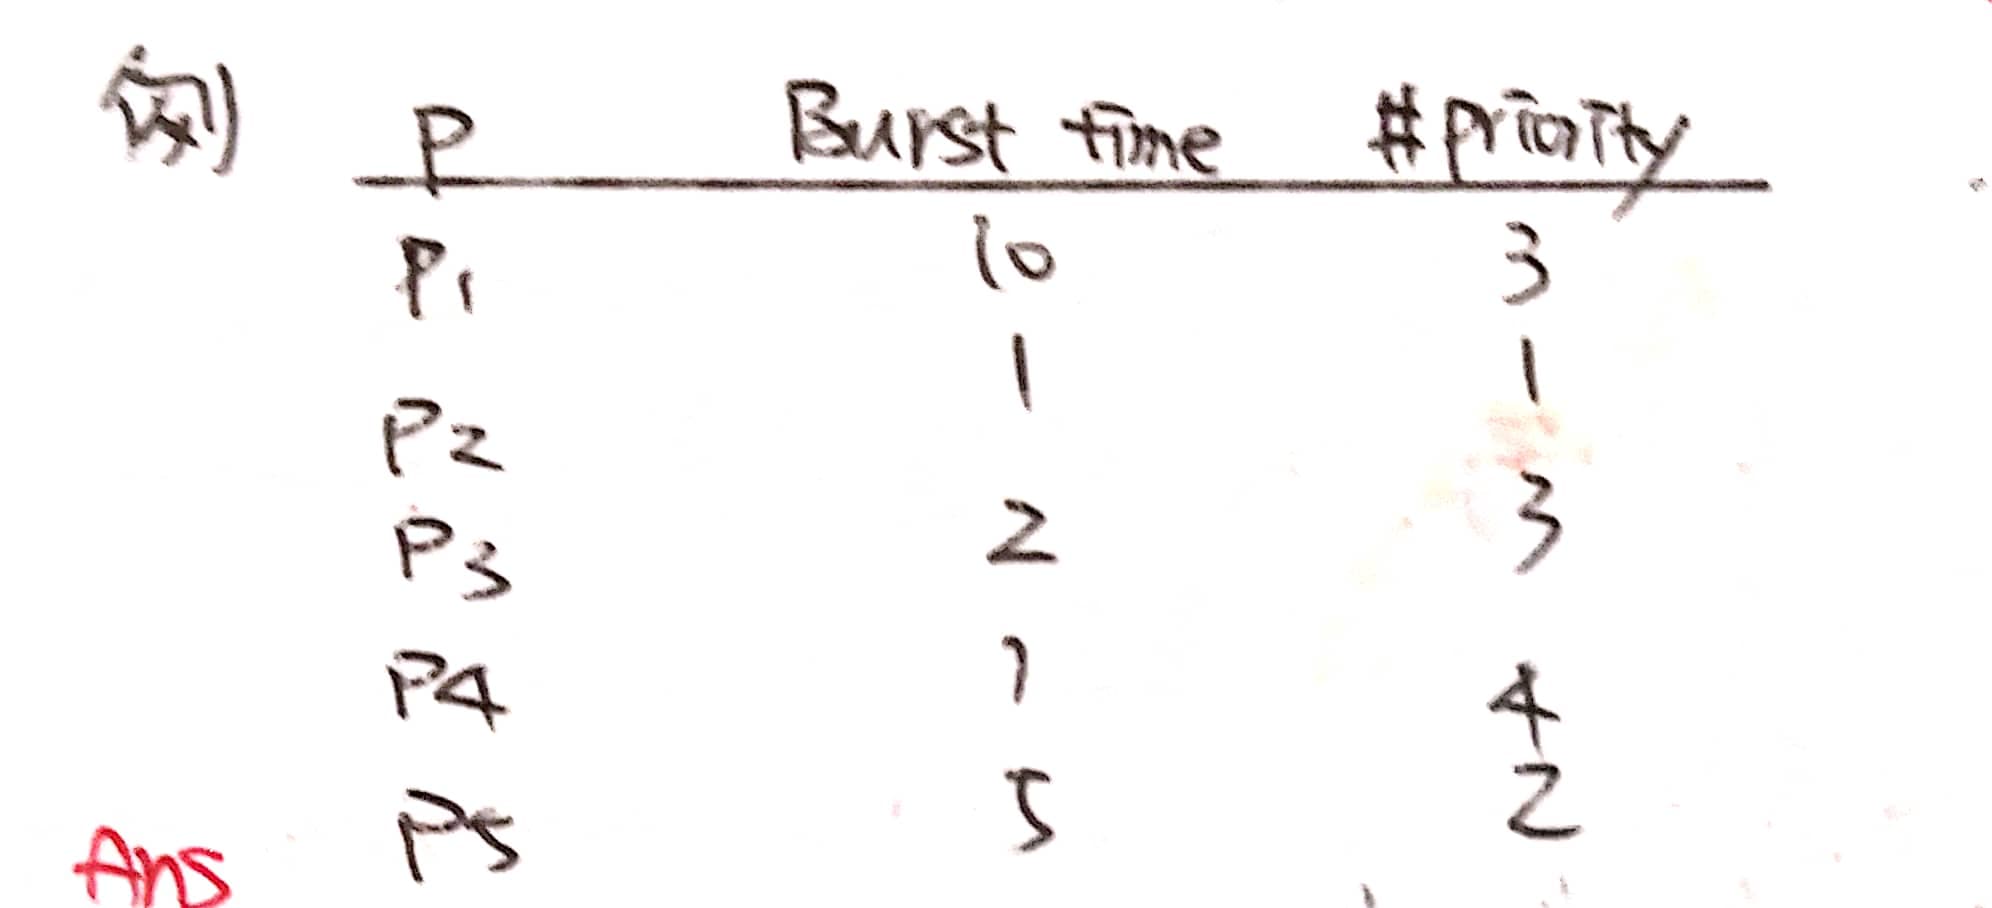 例 P Burst time #priority
P1 10 3
P2 1 1
P3 2 3
P4 1 4
P5 5 2
Ans